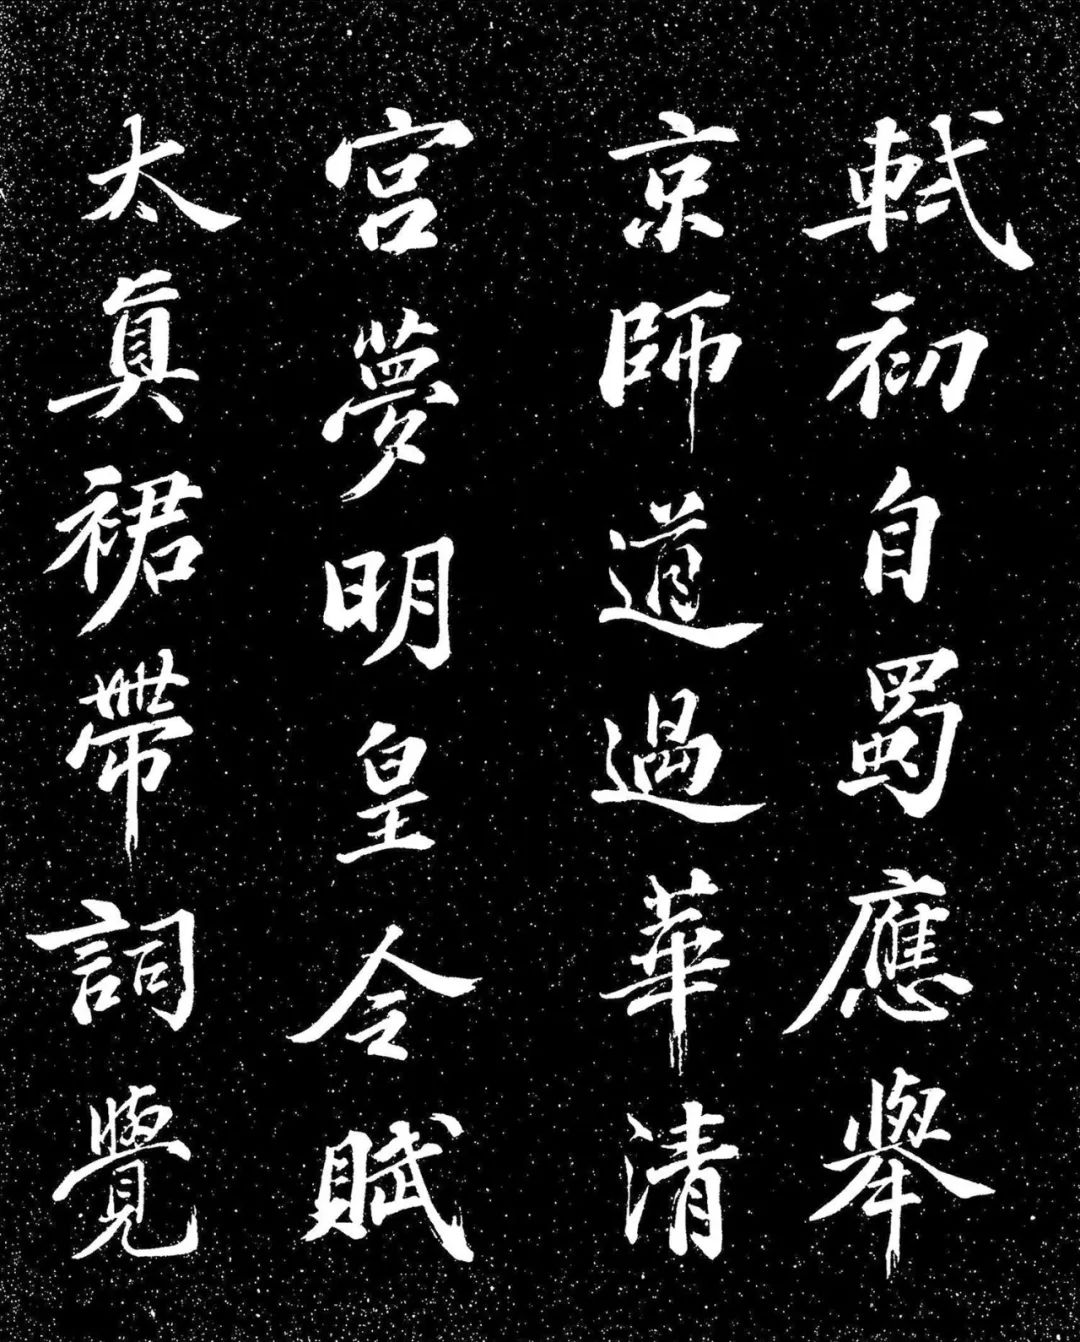 軾初自蜀應舉
京師道過華清
宮夢明皇令賦
太真裙帶詞覺